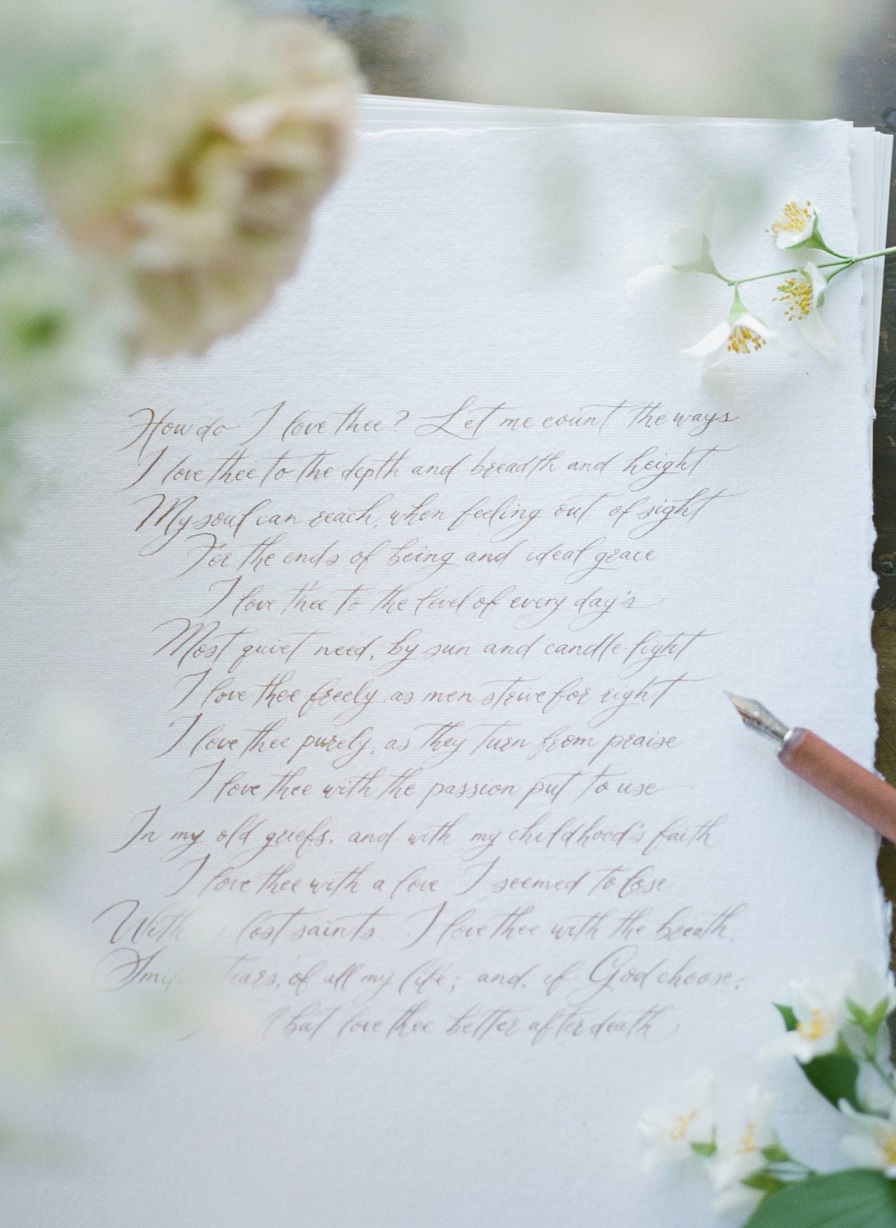 How do I love thee? Let me count the ways
I love thee to the depth and breadth and height
My soul can reach, when feeling out of sight
For the ends of being and ideal grace
I love thee to the level of every day's
Most quiet need, by sun and candle-light
I love thee freely, as men strive for right
I love thee purely, as they turn from praise
I love thee with the passion put to use
In my old griefs, and with my childhood's faith
I love thee with a love I seemed to lose
With lost saints. I love thee with the breath,
tears, of all my life; and, if God choose,
but love thee better after death